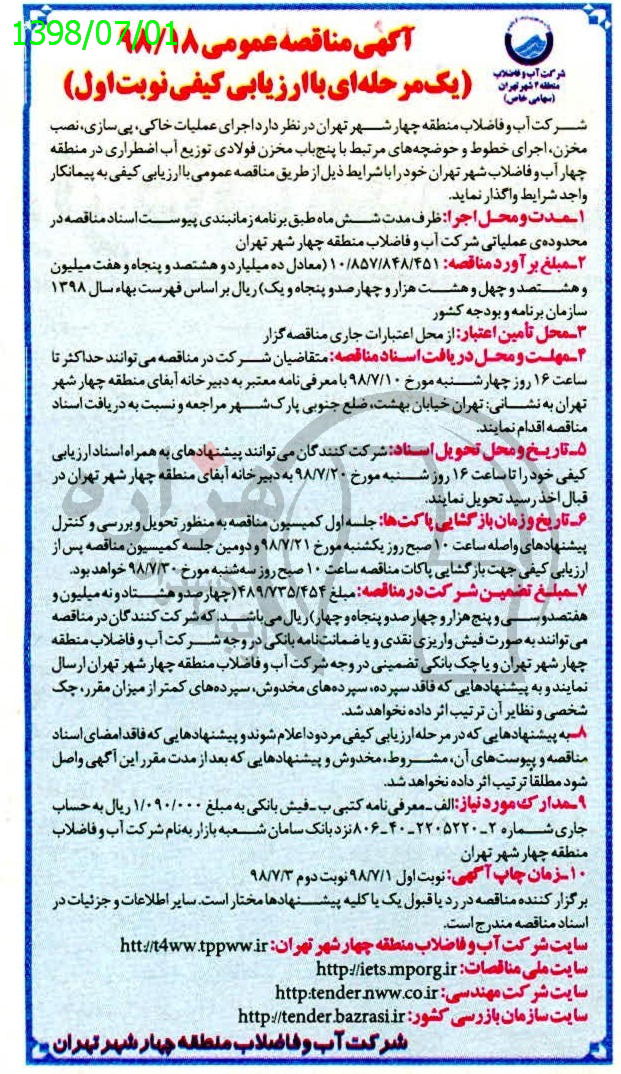 1398/07/01
آگهی مناقصه عمومی ۹۸/۱۸
(یک مرحله‌ای با ارزیابی کیفی نوبت اول)
شرکت آب و فاضلاب
منطقه ۴ شهر تهران
(سهامی خاص)
شرکت آب و فاضلاب منطقه چهار شهر تهران در نظر دارد اجرای عملیات خاکی، پی سازی، نصب
مخزن، اجرای خطوط و حوضچه‌های مرتبط با پنج باب مخزن فولادی توزیع آب اضطراری در منطقه
چهار آب و فاضلاب شهر تهران خود را با شرایط ذیل از طریق مناقصه عمومی با ارزیابی کیفی به پیمانکار
واجد شرایط واگذار نماید.
۱ـ مدت و محل اجرا: ظرف مدت شش ماه طبق برنامه زمانبندی پیوست اسناد مناقصه در
محدوده‌ی عملیاتی شرکت آب و فاضلاب منطقه چهار شهر تهران
۲ـ مبلغ برآورد مناقصه: ۱۰/۸۵۷/۸۴۸/۴۵۱ (معادل ده میلیارد و هشتصد و پنجاه و هفت میلیون
و هشتصد و چهل و هشت هزار و چهارصد و پنجاه و یک) ریال بر اساس فهرست بهاء سال ۱۳۹۸
سازمان برنامه و بودجه کشور
۳ـ محل تأمین اعتبار: از محل اعتبارات جاری مناقصه گزار
۴ـ مهلت و محل دریافت اسناد مناقصه: متقاضیان شرکت در مناقصه می‌توانند حداکثر تا
ساعت ۱۶ روز چهارشنبه مورخ ۹۸/۷/۱۰ با معرفی نامه معتبر به دبیرخانه آبفای منطقه چهار شهر
تهران به نشانی: تهران خیابان بهشت، ضلع جنوبی پارک شهر مراجعه و نسبت به دریافت اسناد
مناقصه اقدام نمایند.
۵ـ تاریخ و محل تحویل اسناد: شرکت کنندگان می‌توانند پیشنهادهای به همراه اسناد ارزیابی
کیفی خود را تا ساعت ۱۶ روز شنبه مورخ ۹۸/۷/۲۰ به دبیرخانه آبفای منطقه چهار شهر تهران در
قبال اخذ رسید تحویل نمایند.
۶ـ تاریخ و زمان بازگشایی پاکت‌ها: جلسه اول کمیسیون مناقصه به منظور تحویل و بررسی و کنترل
پیشنهادهای واصله ساعت ۱۰ صبح روز یکشنبه مورخ ۹۸/۷/۲۱ و دومین جلسه کمیسیون مناقصه پس از
ارزیابی کیفی جهت بازگشایی پاکات مناقصه ساعت ۱۰ صبح روز سه شنبه مورخ ۹۸/۷/۳۰ خواهد بود.
۷ـ مبلغ تضمین شرکت در مناقصه: مبلغ ۴۸۹/۷۳۵/۴۵۴ (چهارصد و هشتاد و نه میلیون و
هفتصد و سی و پنج هزار و چهارصد و پنجاه و چهار) ریال می‌باشد. که شرکت کنندگان در مناقصه
می‌توانند به صورت فیش واریزی نقدی و یا ضمانت نامه بانکی در وجه شرکت آب و فاضلاب منطقه
چهار شهر تهران و یا چک بانکی تضمینی در وجه شرکت آب و فاضلاب منطقه چهار شهر تهران ارسال
نمایند و به پیشنهادهایی که فاقد سپرده، سپرده‌های مخدوش، سپرده‌های کمتر از میزان مقرر، چک
شخصی و نظایر آن ترتیب اثر داده نخواهد شد.
۸ـ به پیشنهادهایی که در مرحله ارزیابی کیفی مردود اعلام شوند و پیشنهادهایی که فاقد امضای اسناد
مناقصه و پیوست‌های آن، مشروط، مخدوش و پیشنهادهایی که بعد از مدت مقرر این آگهی واصل
شود مطلقا ترتیب اثر داده نخواهد شد.
۹ـ مدارک مورد نیاز: الف ـ معرفی نامه کتبی ب ـ فیش بانکی به مبلغ ۱/۰۹۰/۰۰۰ ریال به حساب
جاری شماره ۲ـ۲۲۰۵۲۲۰ـ۴۰ـ۸۰۶ نزد بانک سامان شعبه بازار به نام شرکت آب و فاضلاب
منطقه چهار شهر تهران
۱۰ـ زمان چاپ آگهی: نوبت اول ۹۸/۷/۱ نوبت دوم ۹۸/۷/۳
برگزار کننده مناقصه در رد یا قبول یک یا کلیه پیشنهادها مختار است. سایر اطلاعات و جزئیات در
اسناد مناقصه مندرج است.
سایت شرکت آب و فاضلاب منطقه چهار شهر تهران: htt://t4ww.tppww.ir
سایت ملی مناقصات: http://iets.mporg.ir
سایت شرکت مهندسی: http:tender.nww.co.ir
سایت سازمان بازرسی کشور: http://tender.bazrasi.ir
شرکت آب و فاضلاب منطقه چهار شهر تهران
هزاره